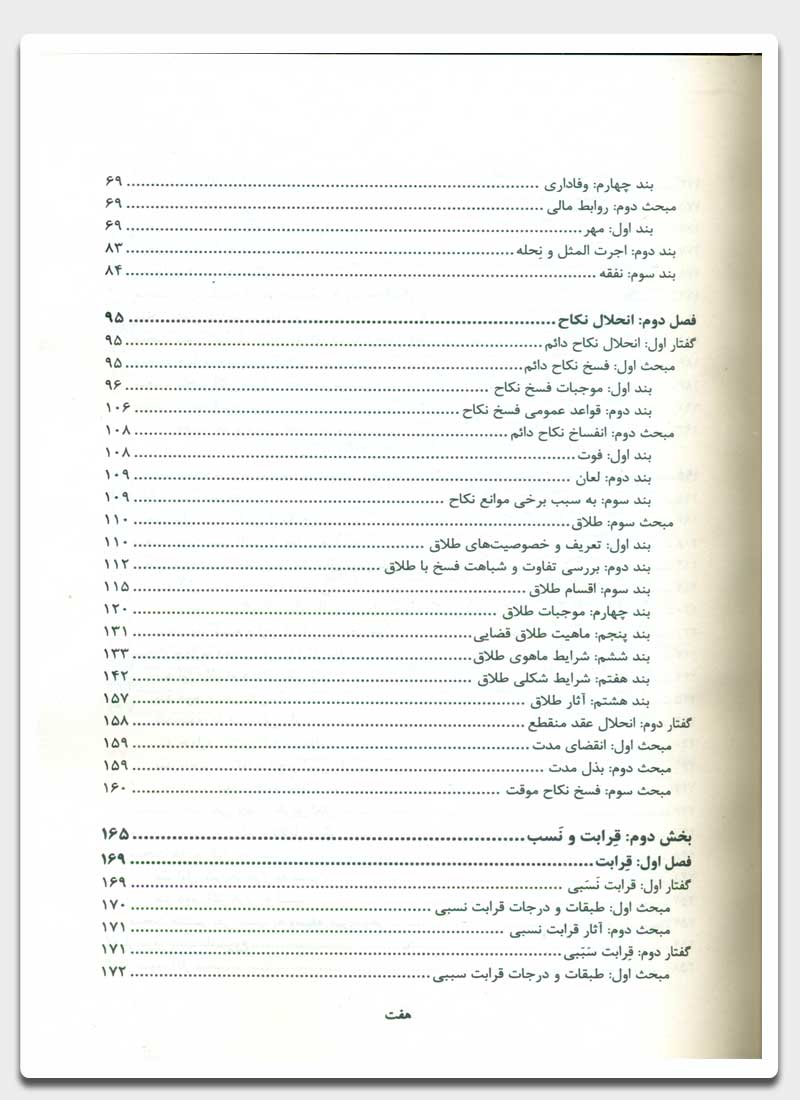 بند چهارم: وفاداری ........ ۶۹
مبحث دوم: روابط مالی ........ ۶۹
بند اول: مهر ........ ۶۹
بند دوم: اجرت المثل و نِحله ........ ۸۳
بند سوم: نفقه ........ ۸۴
فصل دوم: انحلال نکاح ........ ۹۵
گفتار اول: انحلال نکاح دائم ........ ۹۵
مبحث اول: فسخ نکاح دائم ........ ۹۵
بند اول: موجبات فسخ نکاح ........ ۹۶
بند دوم: قواعد عمومی فسخ نکاح ........ ۱۰۶
مبحث دوم: انفساخ نکاح دائم ........ ۱۰۸
بند اول: فوت ........ ۱۰۸
بند دوم: لعان ........ ۱۰۹
بند سوم: به سبب برخی موانع نکاح ........ ۱۰۹
مبحث سوم: طلاق ........ ۱۱۰
بند اول: تعریف و خصوصیت‌های طلاق ........ ۱۱۰
بند دوم: بررسی تفاوت و شباهت فسخ با طلاق ........ ۱۱۲
بند سوم: اقسام طلاق ........ ۱۱۵
بند چهارم: موجبات طلاق ........ ۱۲۰
بند پنجم: ماهیت طلاق قضایی ........ ۱۳۱
بند ششم: شرایط ماهوی طلاق ........ ۱۳۳
بند هفتم: شرایط شکلی طلاق ........ ۱۴۲
بند هشتم: آثار طلاق ........ ۱۵۷
گفتار دوم: انحلال عقد منقطع ........ ۱۵۸
مبحث اول: انقضای مدت ........ ۱۵۹
مبحث دوم: بذل مدت ........ ۱۵۹
مبحث سوم: فسخ نکاح موقت ........ ۱۶۰
بخش دوم: قِرابت و نَسب ........ ۱۶۵
فصل اول: قِرابت ........ ۱۶۹
گفتار اول: قرابت نَسَبی ........ ۱۶۹
مبحث اول: طبقات و درجات قرابت نسبی ........ ۱۷۰
مبحث دوم: آثار قرابت نسبی ........ ۱۷۱
گفتار دوم: قِرابت سَبَبی ........ ۱۷۱
مبحث اول: طبقات و درجات قرابت سببی ........ ۱۷۲
هفت